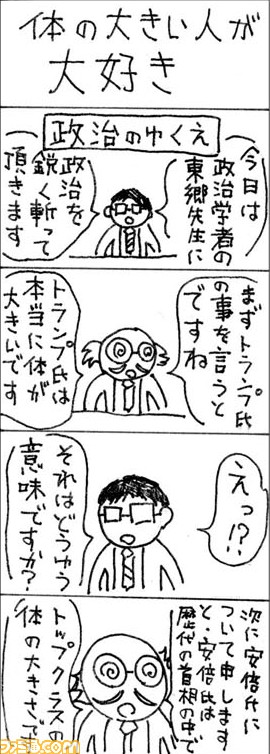 体の大きい人が
大好き
政治のゆくえ
今日は
政治学者の
東郷先生に
政治を
鋭く斬って
頂きます
まずトランプ氏
の事を言うと
ですね
トランプ氏は
本当に体が
大きいです
えっ!?
それはどうゆう
意味ですか?
次に安倍氏に
ついて申します
と、安倍氏は
歴代の首相の中で
トップクラスの
体の大きさで
ファミ通.com